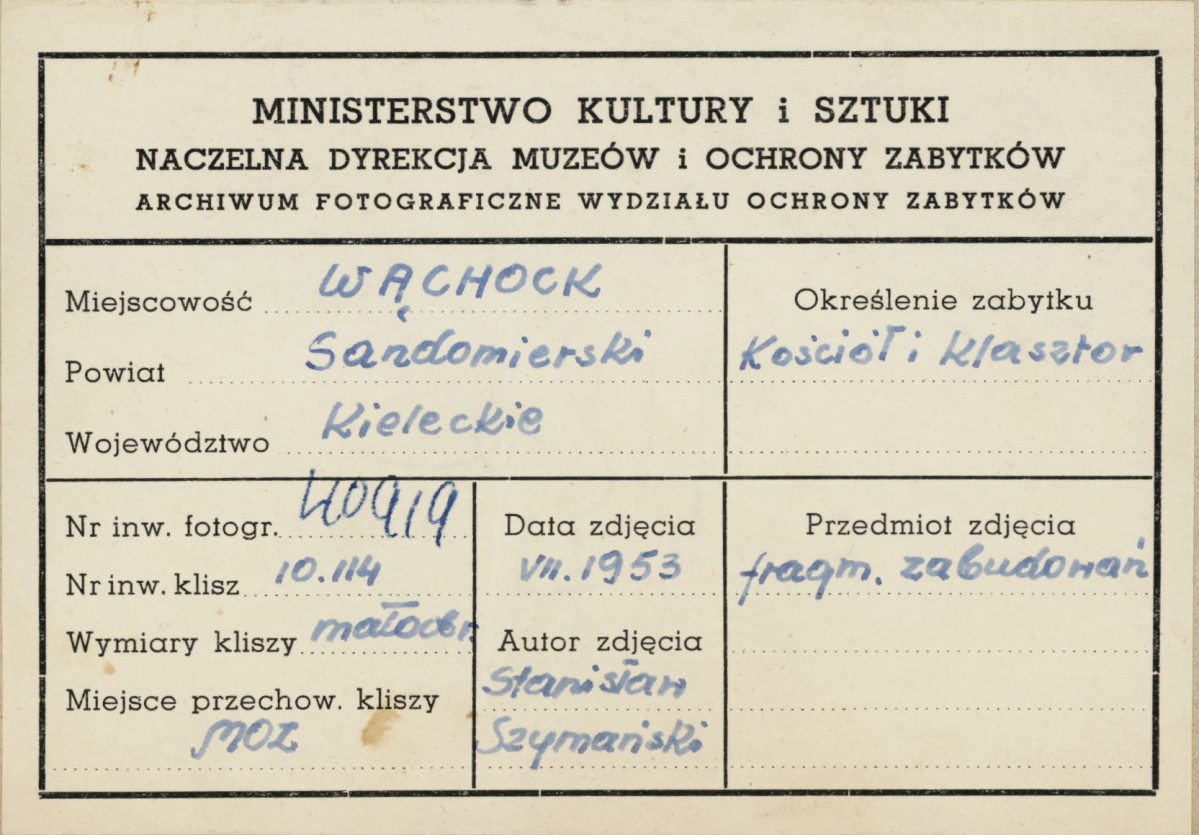 MINISTERSTWO KULTURY i SZTUKI
NACZELNA DYREKCJA MUZEÓW i OCHRONY ZABYTKÓW
ARCHIWUM FOTOGRAFICZNE WYDZIAŁU OCHRONY ZABYTKÓW
Miejscowość WĄCHOCK
Powiat Sandomierski
Województwo Kieleckie
Określenie zabytku
Kościół i Klasztor
Nr inw. fotogr. 40919
Nr inw. klisz 10.114
Wymiary kliszy małoobr.
Miejsce przechow. kliszy
MOZ
Data zdjęcia
VII. 1953
Autor zdjęcia
Stanisław
Szymański
Przedmiot zdjęcia
fragm. zabudowań